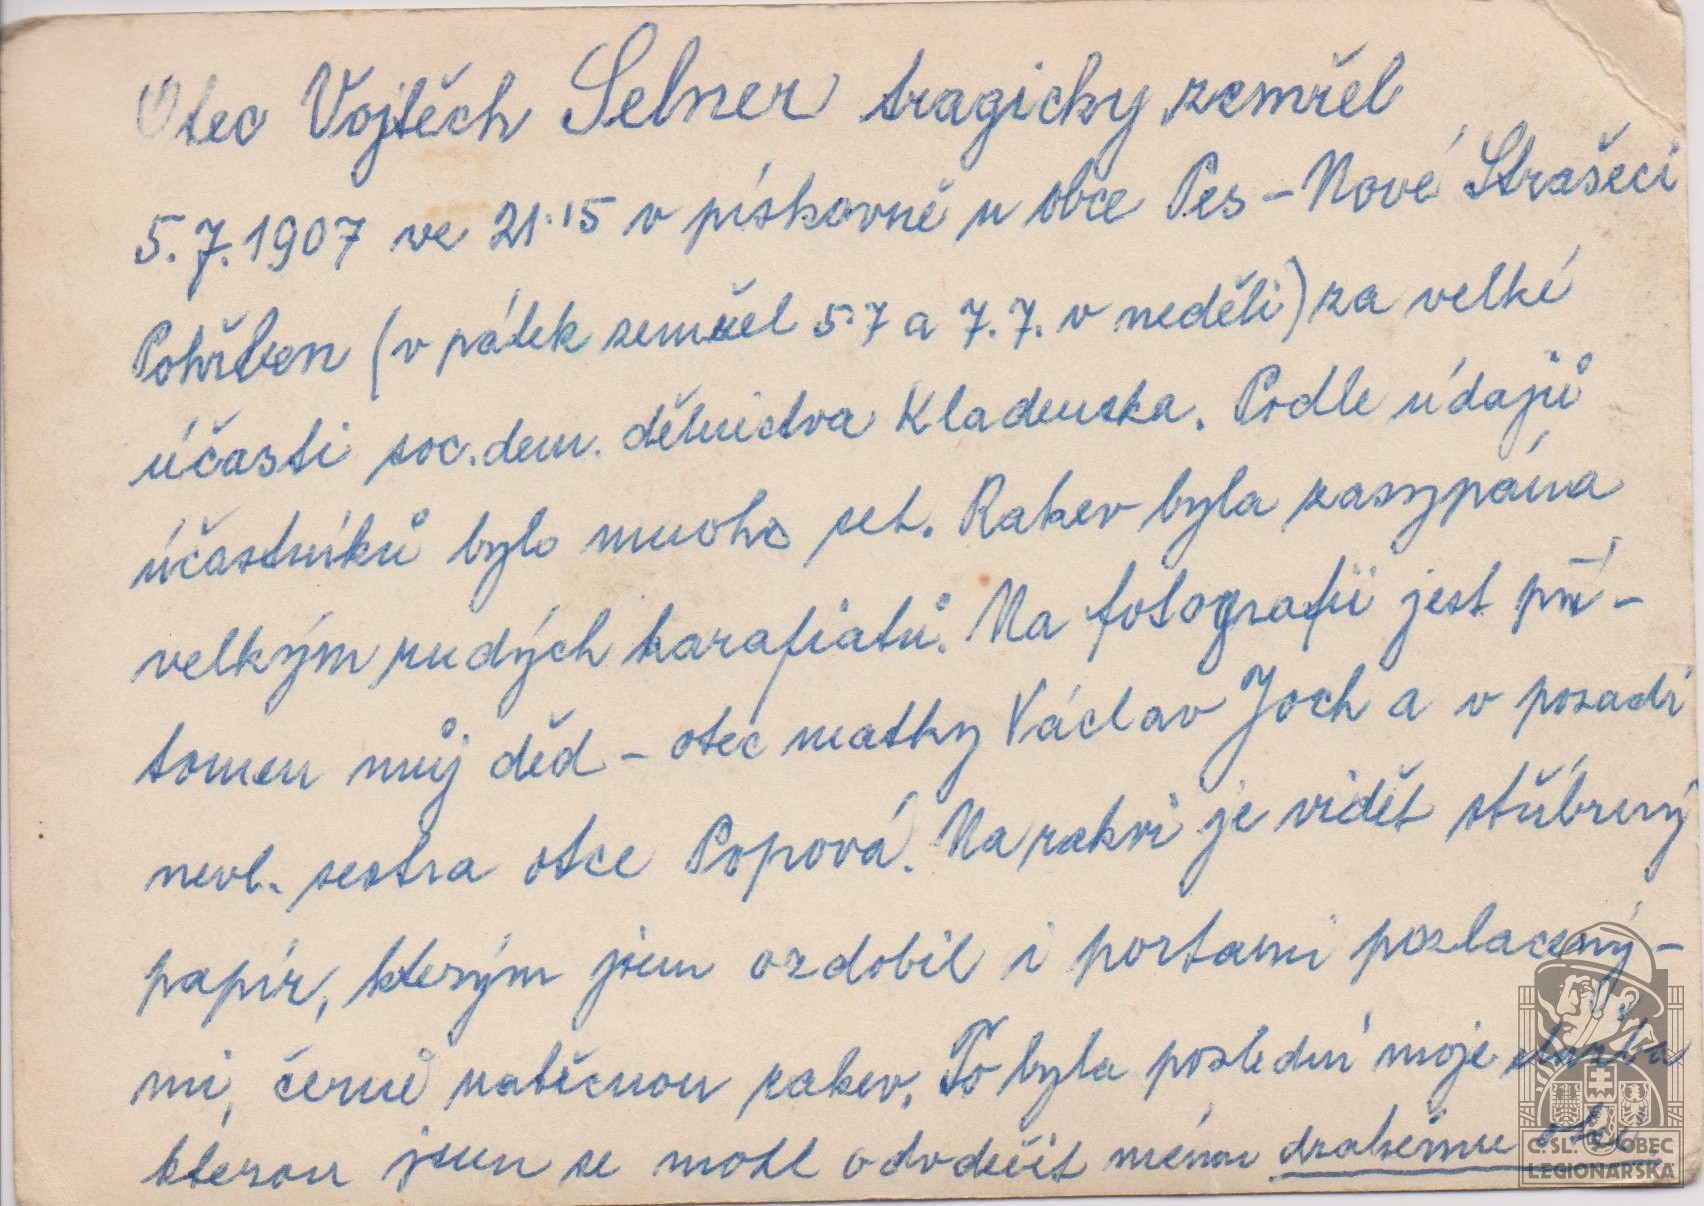 Otec Vojtěch Selner tragicky zemřel
5.7.1907 ve 21.15 v pískovně u obce Pes – Nové Strašecí
Pohřben (v pátek zemřel 5.7 a 7.7. v neděli) za velké
účasti soc.dem. dělnictva Kladenska. Podle údajů
účastníků bylo mnoho set. Rakev byla zasypána
velkým rudých karafiatů. Na fotografii jest pří-
tomen můj děd – otec matky Václav Joch a v pozadí
nevl. sestra otce Popová. Na rakvi je vidět stříbrný
papír, kterým jsem ozdobil i portami pozlacený-
mi, černě natěrnou rakev. To byla poslední moje služba
kterou jsem se mohl odvděčit mému drahému otci
Č.SL. OBEC
LEGIONÁŘSKÁ